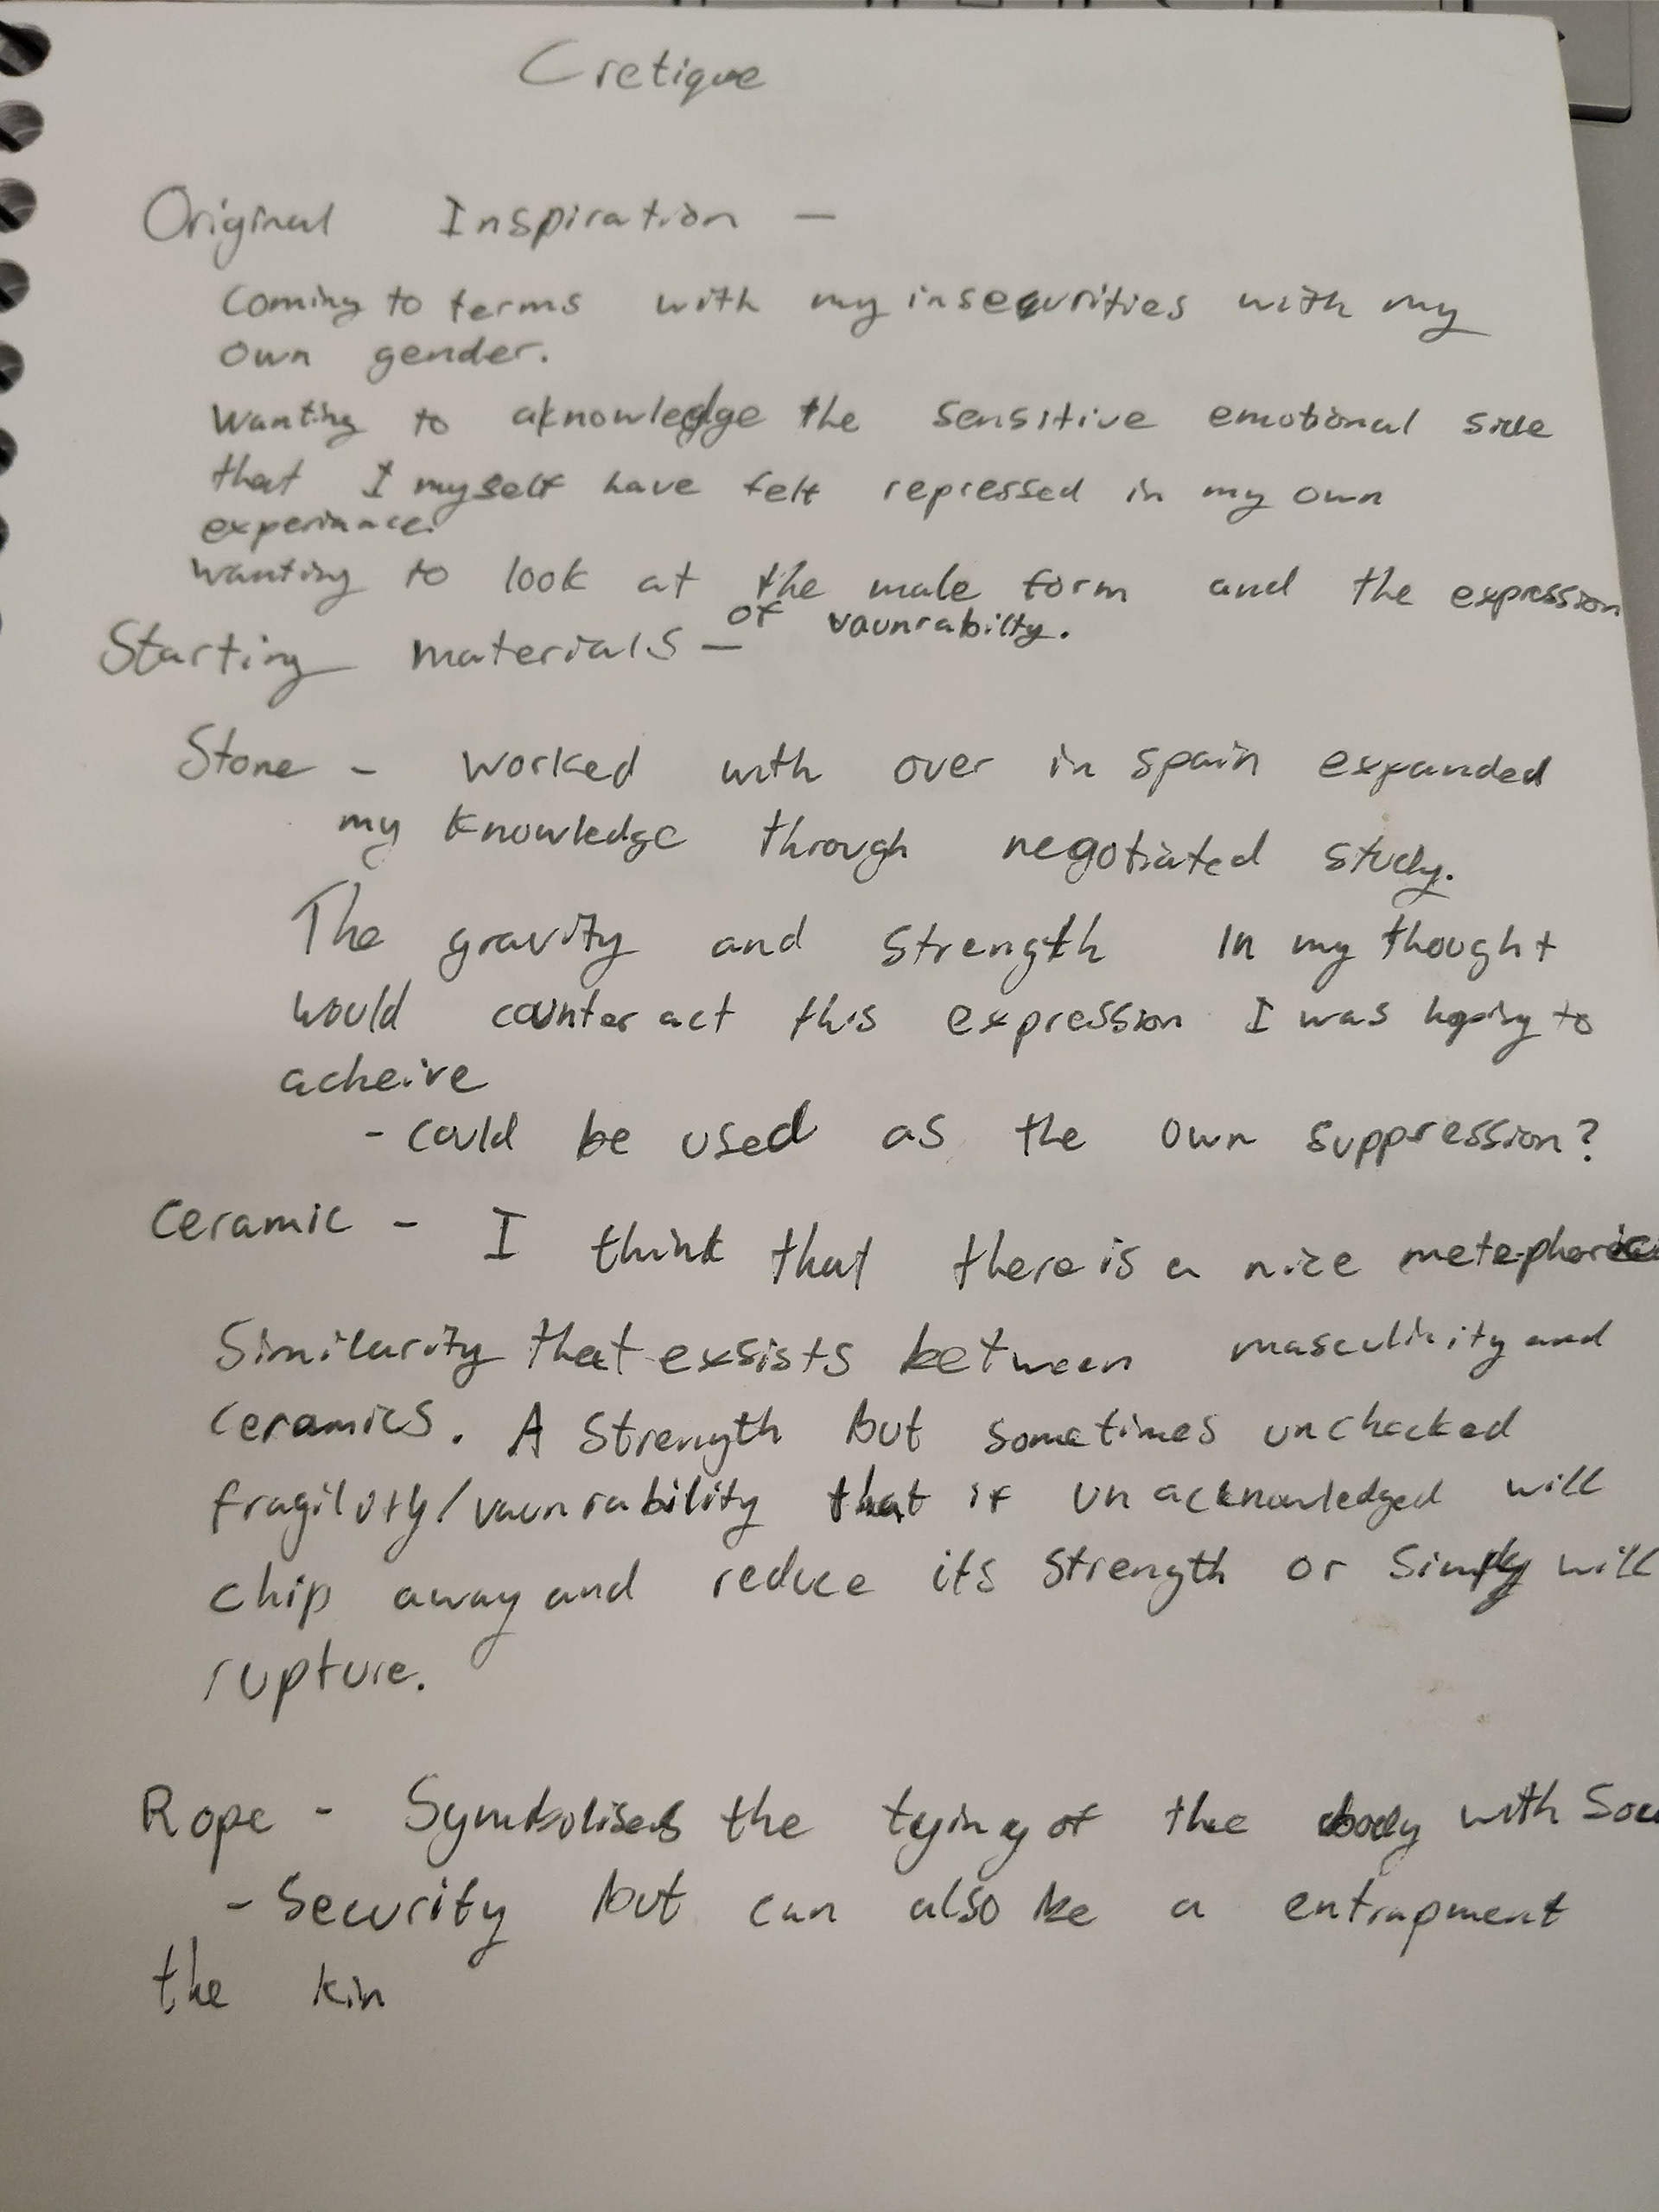 Cretique
Original Inspiration —
Coming to terms with my insecurities with my
own gender.
Wanting to aknowledge the sensitive emotional side
that I myself have felt repressed in my own
experiance.
Wanting to look at the male form and the expression
of vaunrabilty.
Starting materials —
Stone - worked with over in spain expanded
my knowledge through negotiated study.
The gravity and strength In my thought
would counter act this expression I was hoping to
acheive
- could be used as the own suppression?
Ceramic - I think that there is a nice
Similarity that exsists between masculinity and
ceramics. A strength but sometimes unchecked
fragility/vaunrability that if unacknowledged will
chip away and reduce its strength or simply will
rupture.
Rope - Symbolises the tying of the body with
- Security but can also be a entrapment
the kin